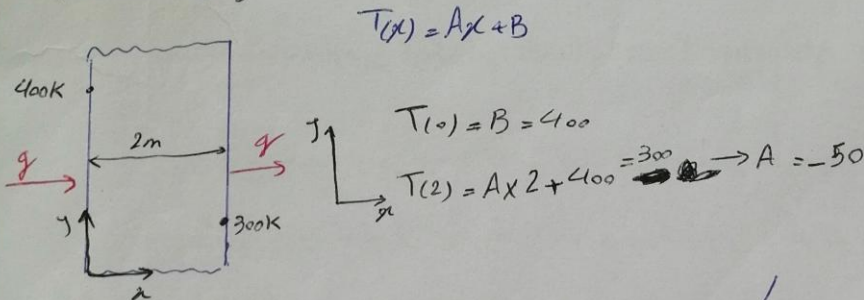 T(x) = Ax + B
400K
2m
q
q
y
x
300K
y
x
T(0) = B = 400
T(2) = A×2 + 400 = 300 → A = -50